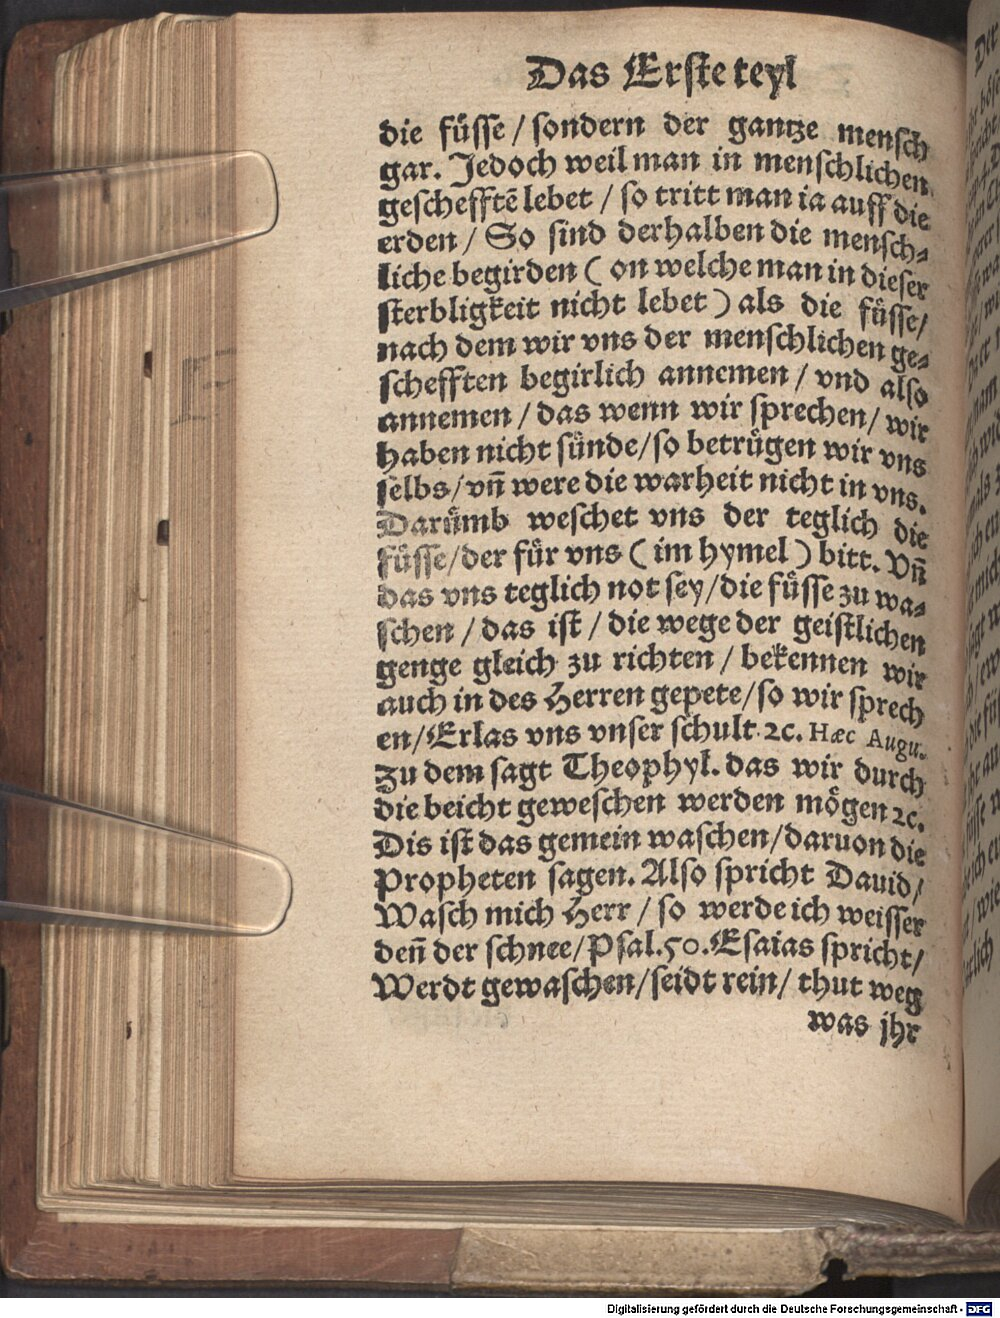 Das Erste teyl
die füsse / sondern der gantze mensch
gar. Jedoch weil man in menschlichen
geschefftē lebet / so tritt man ia auff die
erden / So sind derhalben die mensch⸗
liche begirden ( on welche man in dieser
sterbligkeit nicht lebet ) als die füsse /
nach dem wir vns der menschlichen ge⸗
schefften begirlich annemen / vnd also
annemen / das wenn wir sprechen / wir
haben nicht sünde / so betrügen wir vns
selbs / vn̄ were die warheit nicht in vns.
Darümb weschet vns der teglich die
füsse / der für vns ( im hymel ) bitt. Vn̄
das vns teglich not sey / die füsse zu wa⸗
schen / das ist / die wege der geistlichen
genge gleich zu richten / bekennen wir
auch in des Herren gepete / so wir sprech
en / Erlas vns vnser schult ꝛc. Hæc Augu.
Zu dem sagt Theophyl. das wir durch
die beicht geweschen werden mögen ꝛc.
Dis ist das gemein waschen / daruon die
Propheten sagen. Also spricht Dauid /
Wasch mich Herr / so werde ich weisser
den̄ der schnee / Psal. 50. Esaias spricht /
Werdt gewaschen / seidt rein / thut weg
was jhr
Digitalisierung gefördert durch die Deutsche Forschungsgemeinschaft - DFG